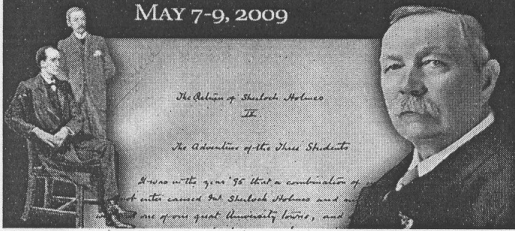 MAY 7-9, 2009
The Return of Sherlock Holmes.
IX
The Adventure of the Three Students
It was in the year '95 that a combination of
not enter caused Mr Sherlock Holmes and
one of our great University towns, and